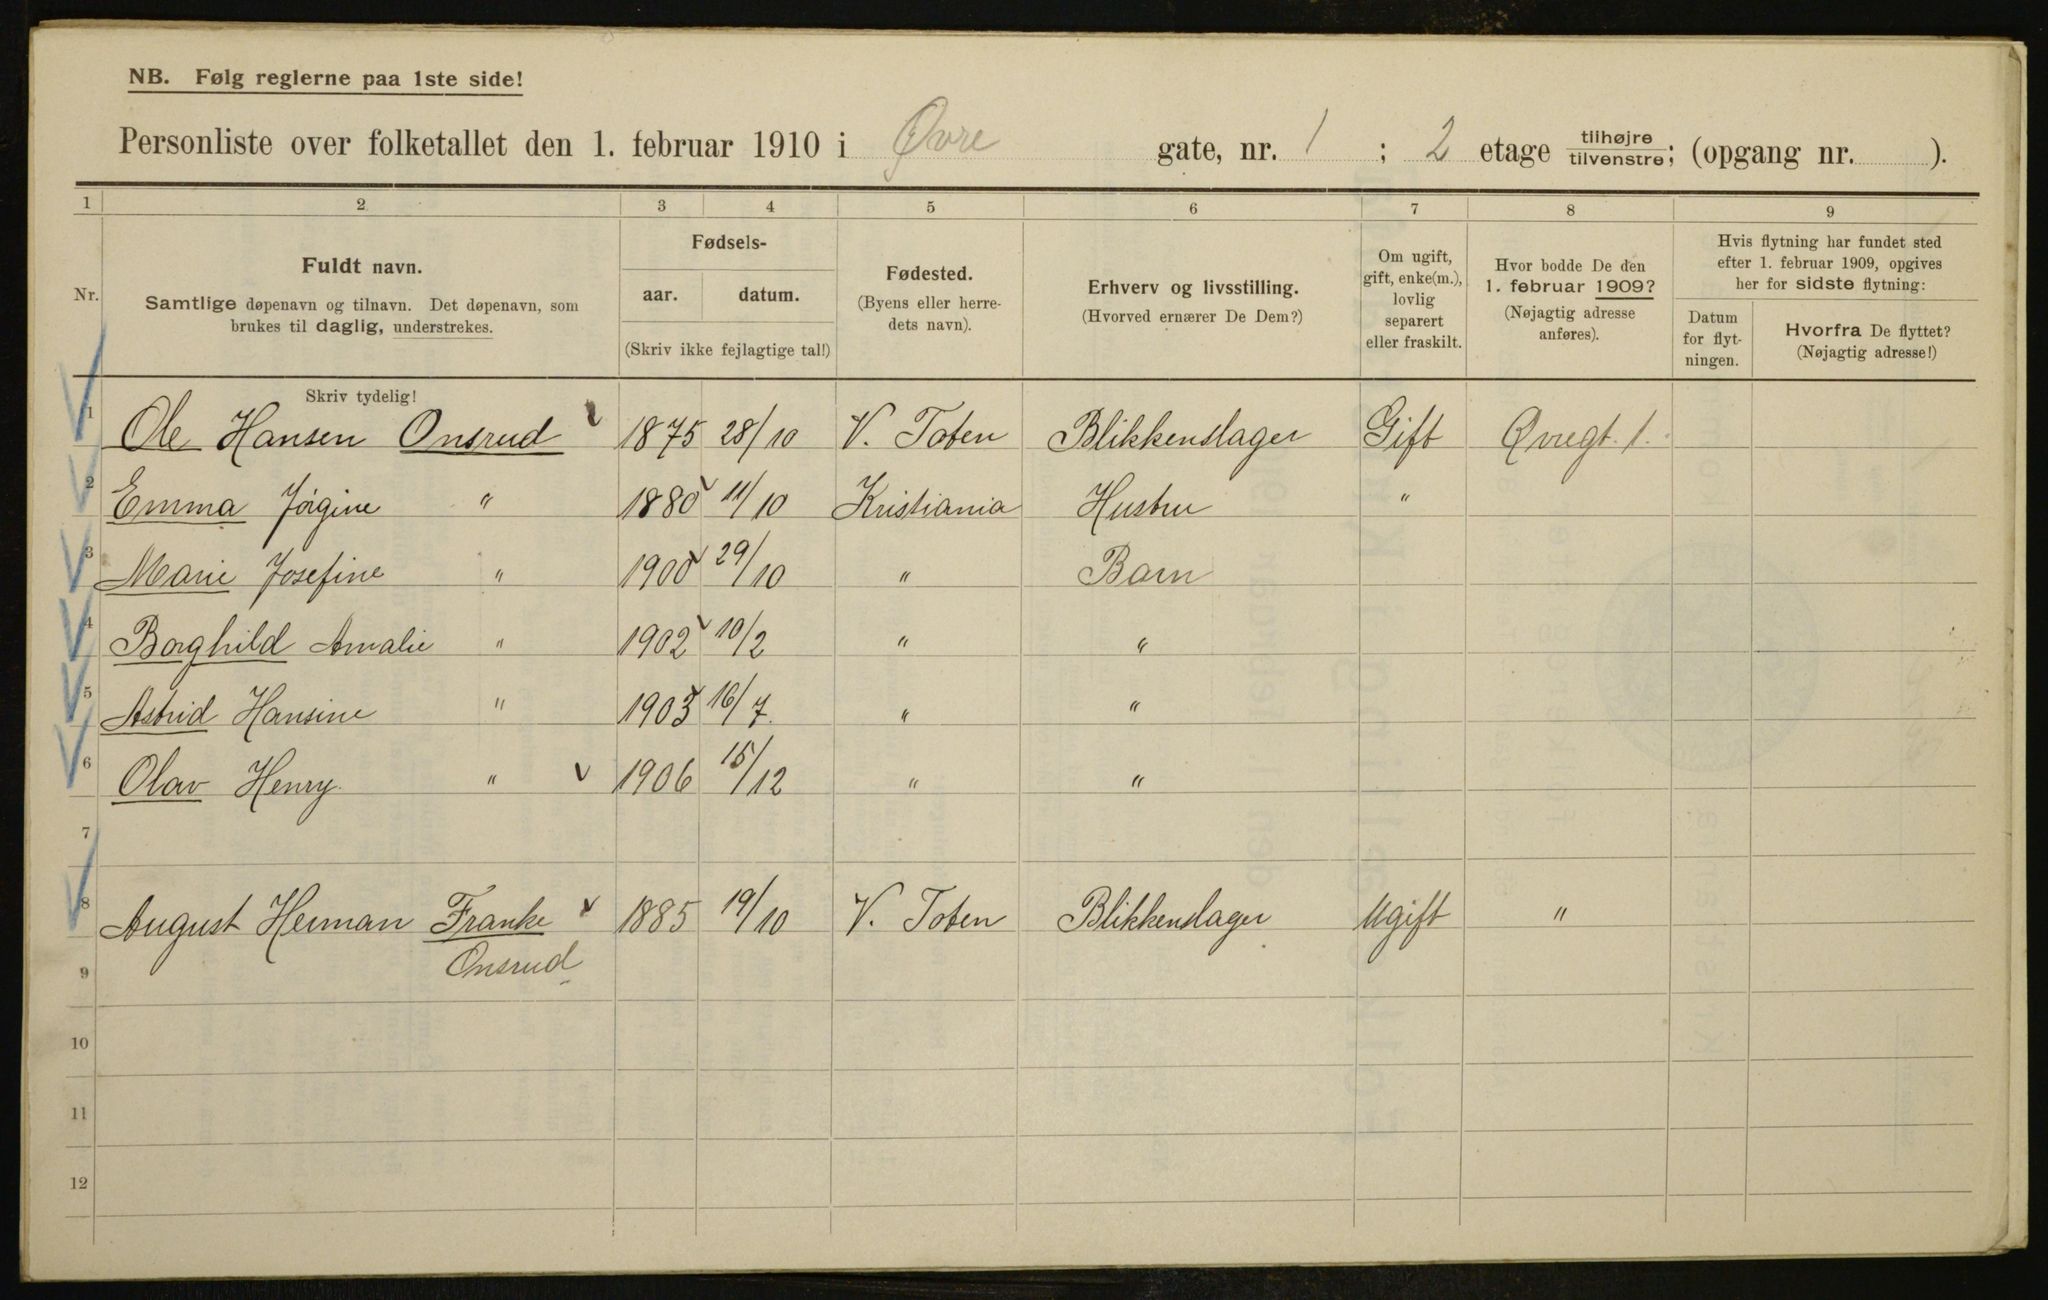 NB. Følg reglerne paa 1ste side!
Personliste over folketallet den 1. februar 1910 i Øvre gate, nr. 1 ; 2 etage tilhøjre/tilvenstre; (opgang nr. ).
1 2 3 4 5 6 7 8 9
Nr.
Fuldt navn.
Samtlige døpenavn og tilnavn. Det døpenavn, som
brukes til daglig, understrekes.
Fødsels-
aar. datum.
(Skriv ikke fejlagtige tal!)
Fødested.
(Byens eller herre-
dets navn).
Erhverv og livsstilling.
(Hvorved ernærer De Dem?)
Om ugift,
gift, enke(m.),
lovlig
separert
eller fraskilt.
Hvor bodde De den
1. februar 1909?
(Nøjagtig adresse
anføres).
Hvis flytning har fundet sted
efter 1. februar 1909, opgives
her for sidste flytning:
Datum
for flyt-
ningen.
Hvorfra De flyttet?
(Nøjagtig adresse!)
Skriv tydelig!
1 Ole Hansen Onsrud 1875 28/10 V. Toten Blikkenslager Gift Øvregt. 1.
2 Emma Jørgine " 1880 11/10 Kristiania Hustru "
3 Marie Josefine " 1900 29/10 " Barn
4 Borghild Amalie " 1902 10/2 " "
5 Astrid Hansine " 1903 16/7. " "
6 Olav Henry. " 1906 15/12 " "
7
8 August Herman Franke 1885 19/10 V. Toten Blikkenslager Ugift "
9 Onsrud
10
11
12